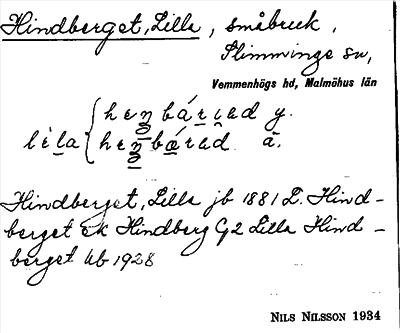 Hindberget, Lilla, småbruk,
Slimminge sn,
Vemmenhögs hd, Malmöhus län
hen bárıad y.
lìla
hen bǽrad. ä.
Hindberget, Lilla jb 1881 L. Hind-
berget ek Hindberg G2 Lilla Hind-
berget Ub 1928
NILS NILSSON 1934